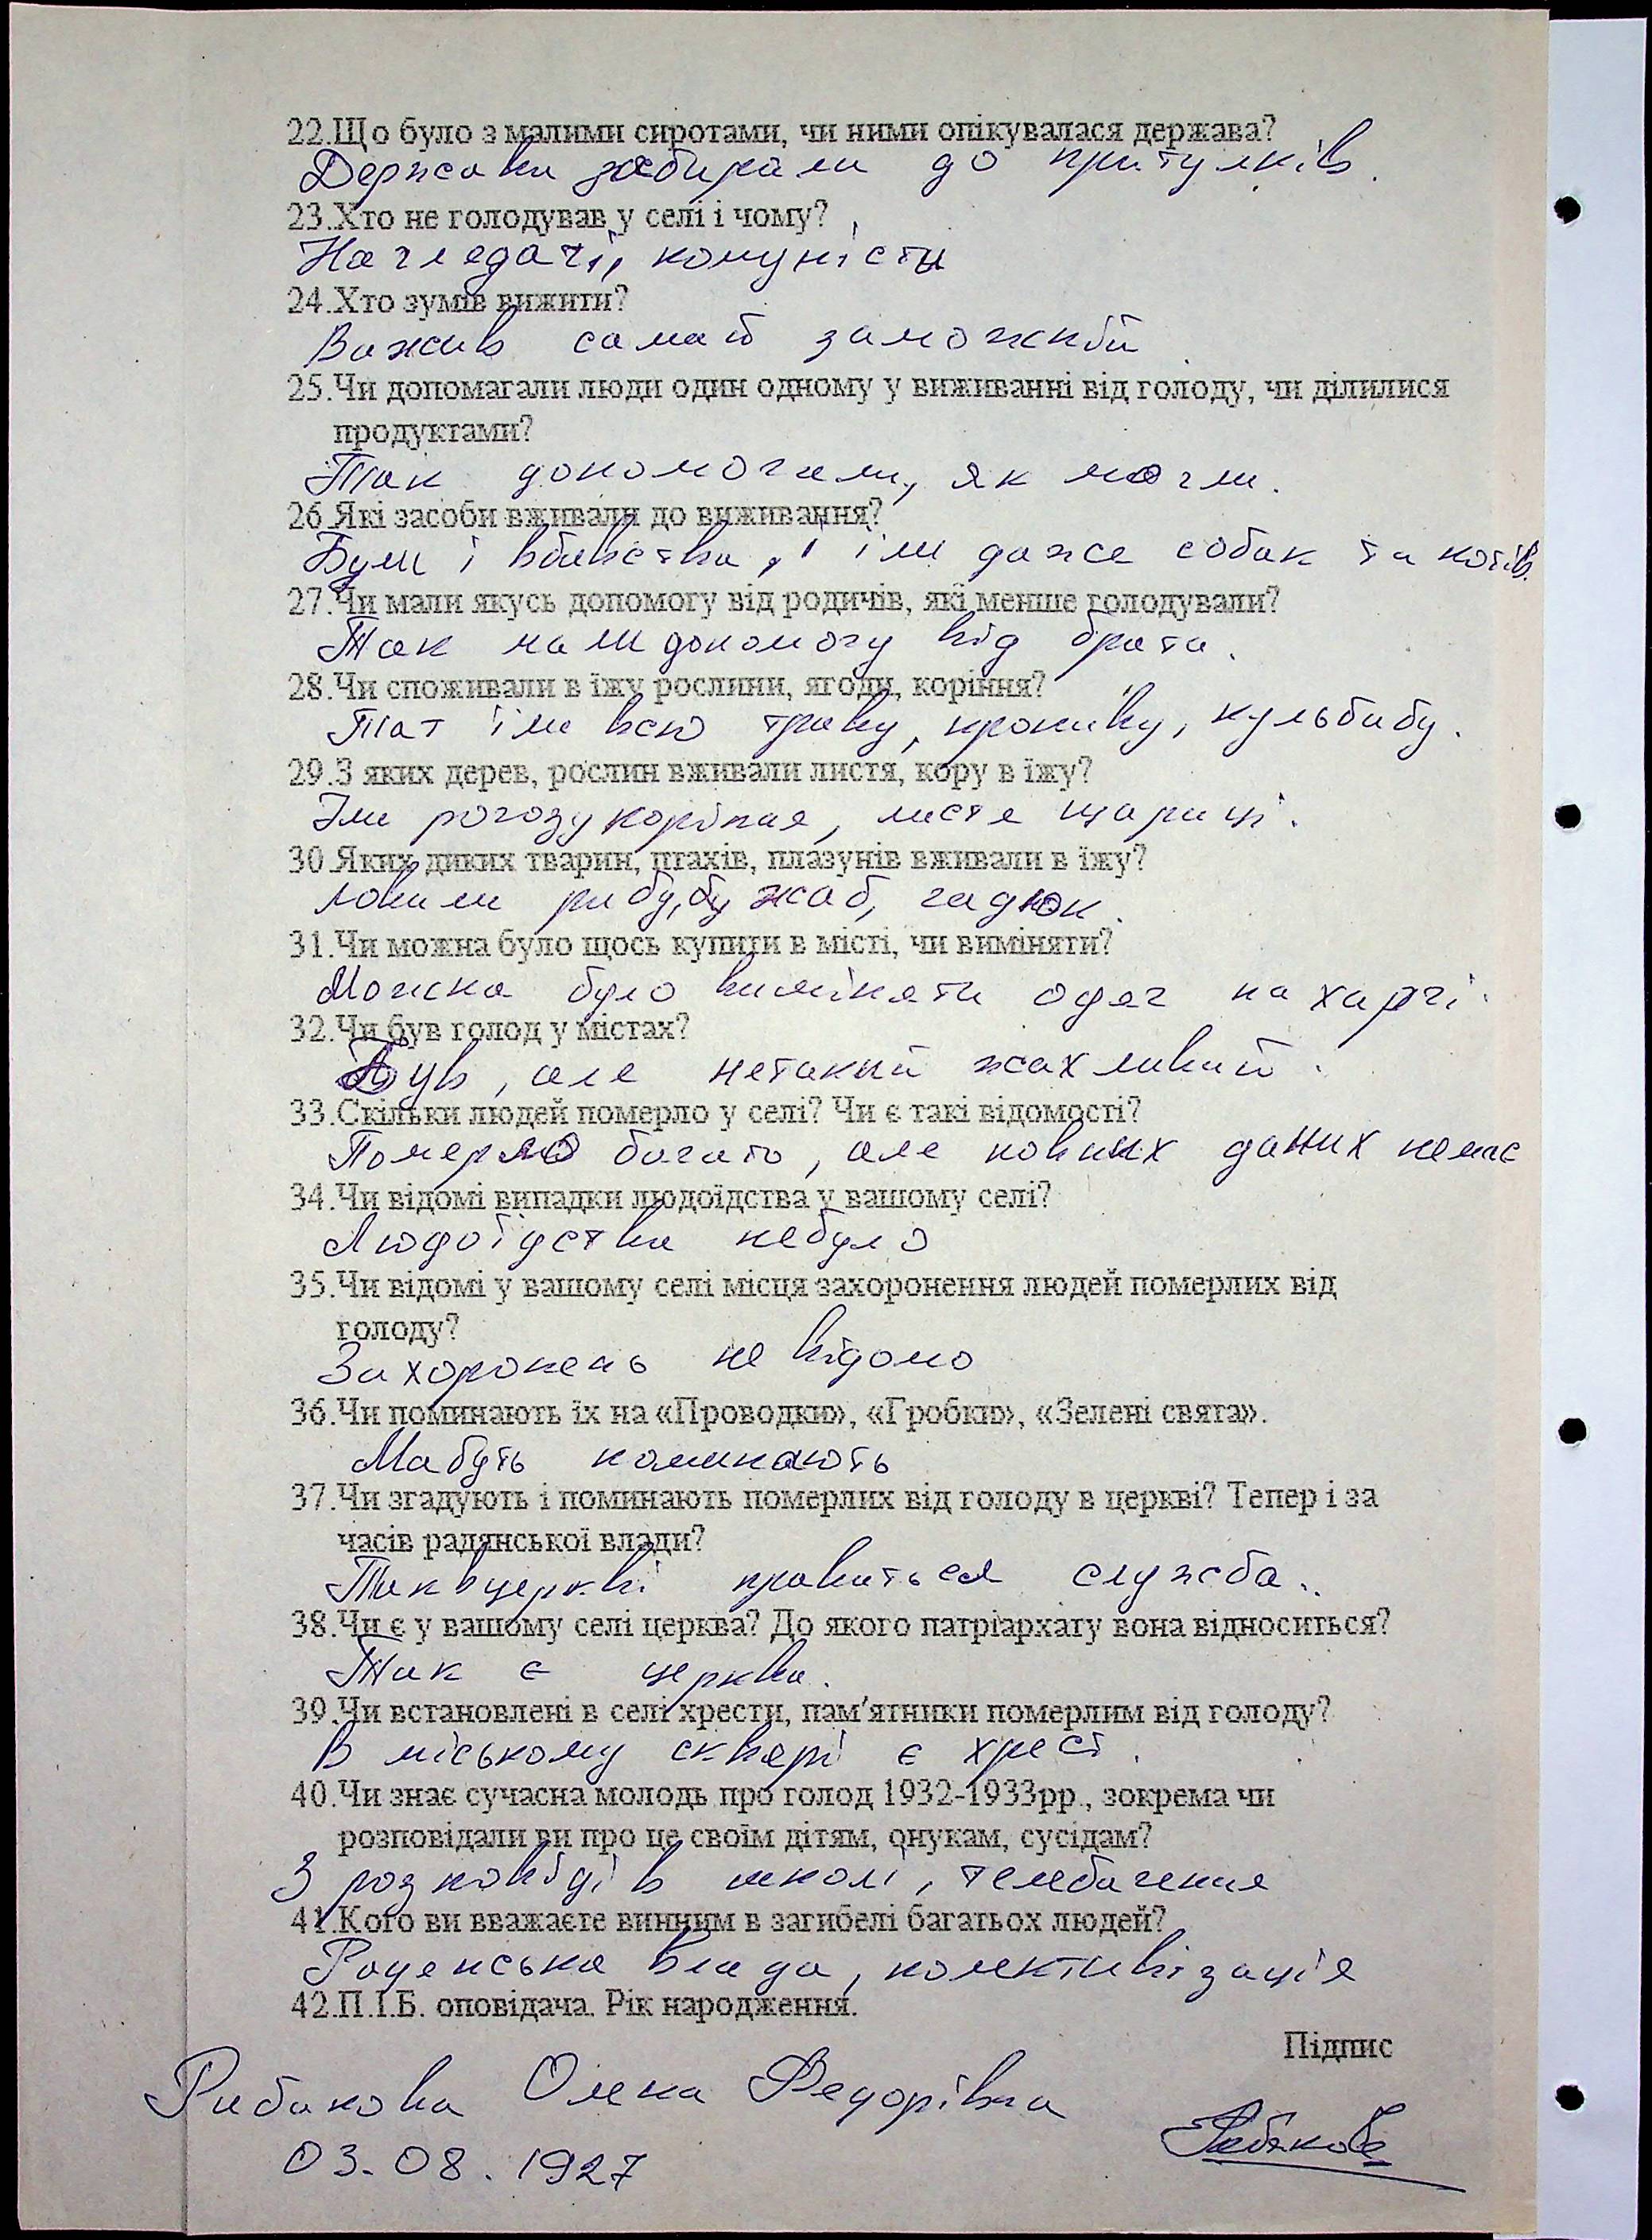 22.Що було з малими сиротами, чи ними опікувалася держава?
Держава забирала до притулків.
23.Хто не голодував у селі і чому?
Наглядачі, комуністи
24.Хто зумів вижити?
Важив самай заможній.
25.Чи допомагали люди один одному у виживанні від голоду, чи ділилися
продуктами?
Так допомогали, як могли.
26.Які засоби вживали до виживання?
Були і вбивства, і їли даже собак та котів.
27.Чи мали якусь допомогу від родичів, які менше голодували?
Так мали допомогу від брата.
28.Чи споживали в їжу рослини, ягоди, коріння?
Так їли всю траву, кропиву, кульбабу.
29.З яких дерев, рослин вживали листя, кору в їжу?
Їли рогозу коріння, листя щариці.
30.Яких диких тварин, птахів, плазунів вживали в їжу?
Ловили рибу, жаб, гадюк.
31.Чи можна було щось купити в місті, чи виміняти?
Можна було виміняти одяг на харчі.
32.Чи був голод у містах?
Був, але нетакий жахливий.
33.Скільки людей померло у селі? Чи є такі відомості?
Померло багато, але повних даних немає
34.Чи відомі випадки людоїдства у вашому селі?
Людоїдства небуло
35.Чи відомі у вашому селі місця захоронення людей померлих від
голоду?
Захоронень не відомо
36.Чи поминають їх на «Проводки», «Гробки», «Зелені свята».
Мабуть поминають
37.Чи згадують і поминають померлих від голоду в церкві? Тепер і за
часів радянської влади?
Так в церкві правиться служба.
38.Чи є у вашому селі церква? До якого патріархату вона відноситься?
Так є церква.
39.Чи встановлені в селі хрести, пам'ятники померлим від голоду?
В міському сквері є хрест.
40.Чи знає сучасна молодь про голод 1932-1933рр., зокрема чи
розповідали ви про це своїм дітям, онукам, сусідам?
З розповіді в школі, телебачення
41.Кого ви вважаєте винним в загибелі багатьох людей?
Радянська влада, колективізація
42.П.І.Б. оповідача. Рік народження.
Підпис
Рибакова Олена Федорівна
Рибакова
03.08.1927